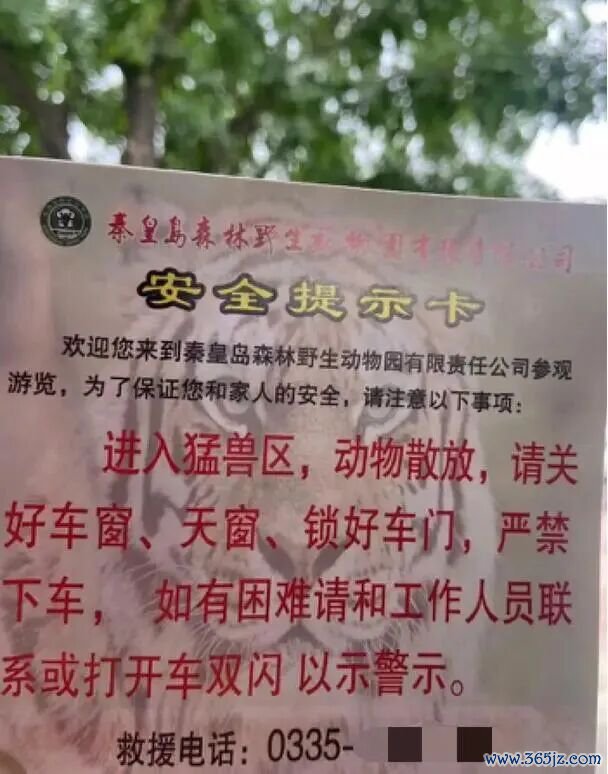 秦皇岛森林野生动物园有限责任公司
安全提示卡
欢迎您来到秦皇岛森林野生动物园有限责任公司参观
游览，为了保证您和家人的安全，请注意以下事项：
进入猛兽区，动物散放，请关
好车窗、天窗、锁好车门，严禁
下车， 如有困难请和工作人员联
系或打开车双闪 以示警示。
救援电话：0335-
www.365jz.com